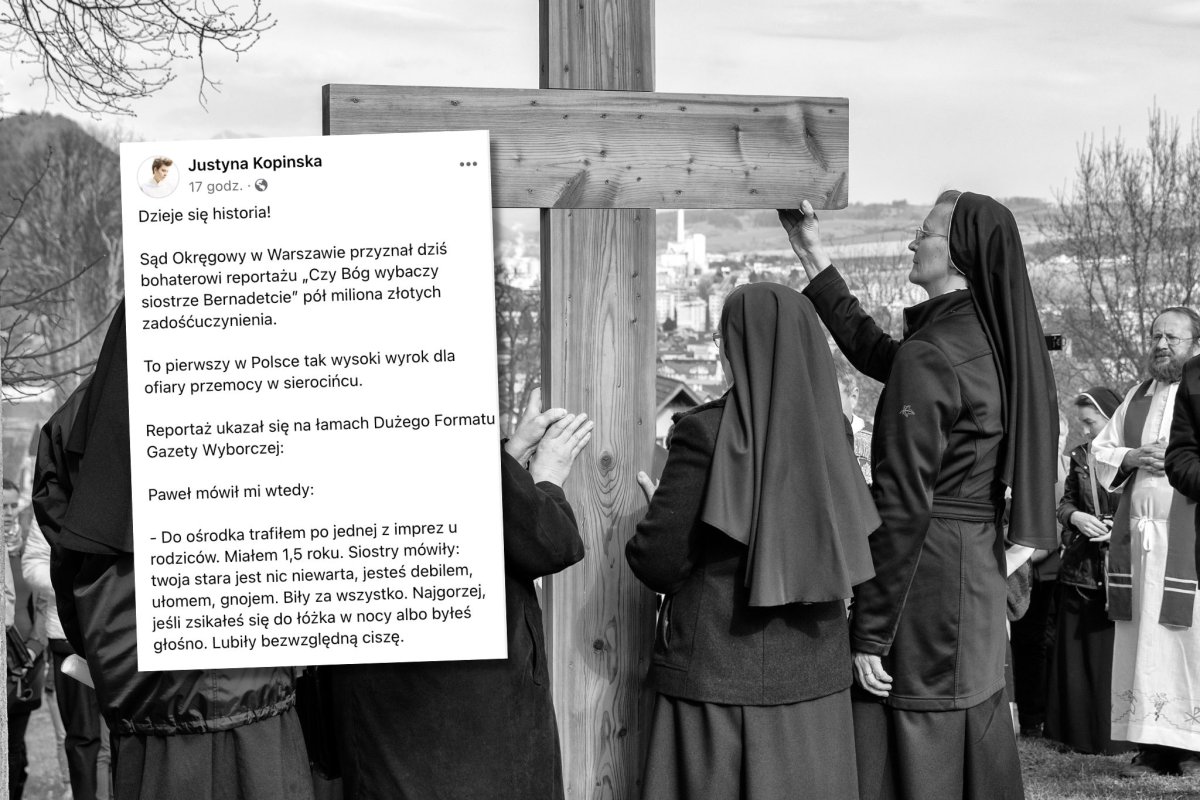 Justyna Kopinska
17 godz. ·
Dzieje się historia!
Sąd Okręgowy w Warszawie przyznał dziś
bohaterowi reportażu „Czy Bóg wybaczy
siostrze Bernadetcie” pół miliona złotych
zadośćuczynienia.
To pierwszy w Polsce tak wysoki wyrok dla
ofiary przemocy w sierocińcu.
Reportaż ukazał się na łamach Dużego Formatu
Gazety Wyborczej:
Paweł mówił mi wtedy:
- Do ośrodka trafiłem po jednej z imprez u
rodziców. Miałem 1,5 roku. Siostry mówiły:
twoja stara jest nic niewarta, jesteś debilem,
ułomem, gnojem. Biły za wszystko. Najgorzej,
jeśli zsikałeś się do łóżka w nocy albo byłeś
głośno. Lubiły bezwzględną ciszę.